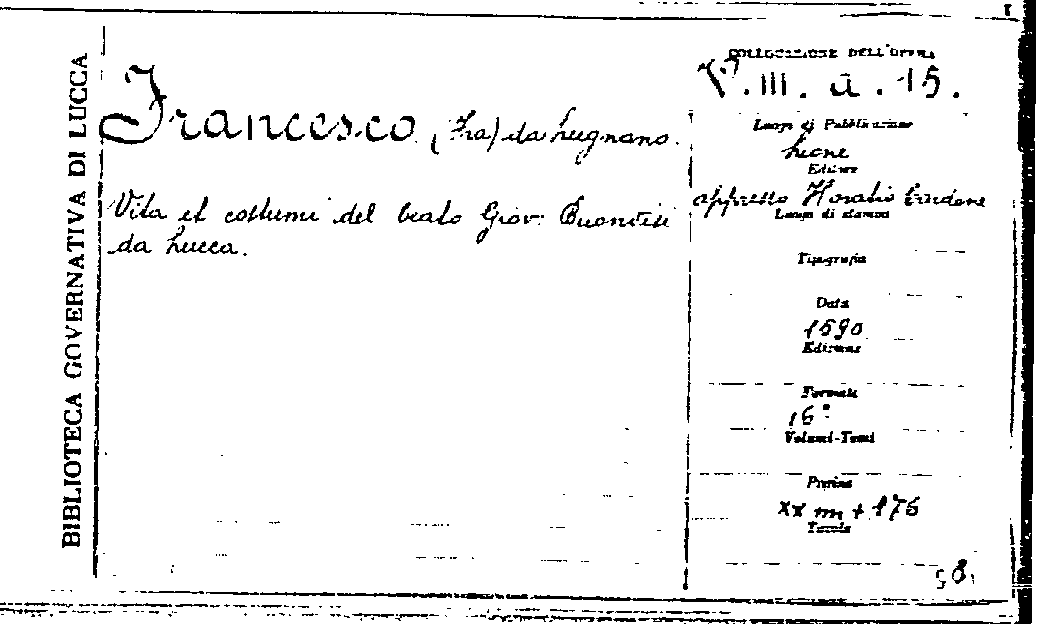 BIBLIOTECA GOVERNATIVA DI LUCCA
Francesco (Fra) da Lugnano.
Vita et costumi del beato Giov. Buonvisi
da Lucca.
COLLOCAZIONE DELL'OPERA
V. III. a. 15.
Luogo di Pubblicazione
Lione
Editore
appresso Horatio Cardone
Luogo di stampa
Tipografia
Data
1590
Edizione
Formato
16°
Volumi-Tomi
Pagine
XX + 176
Tavole